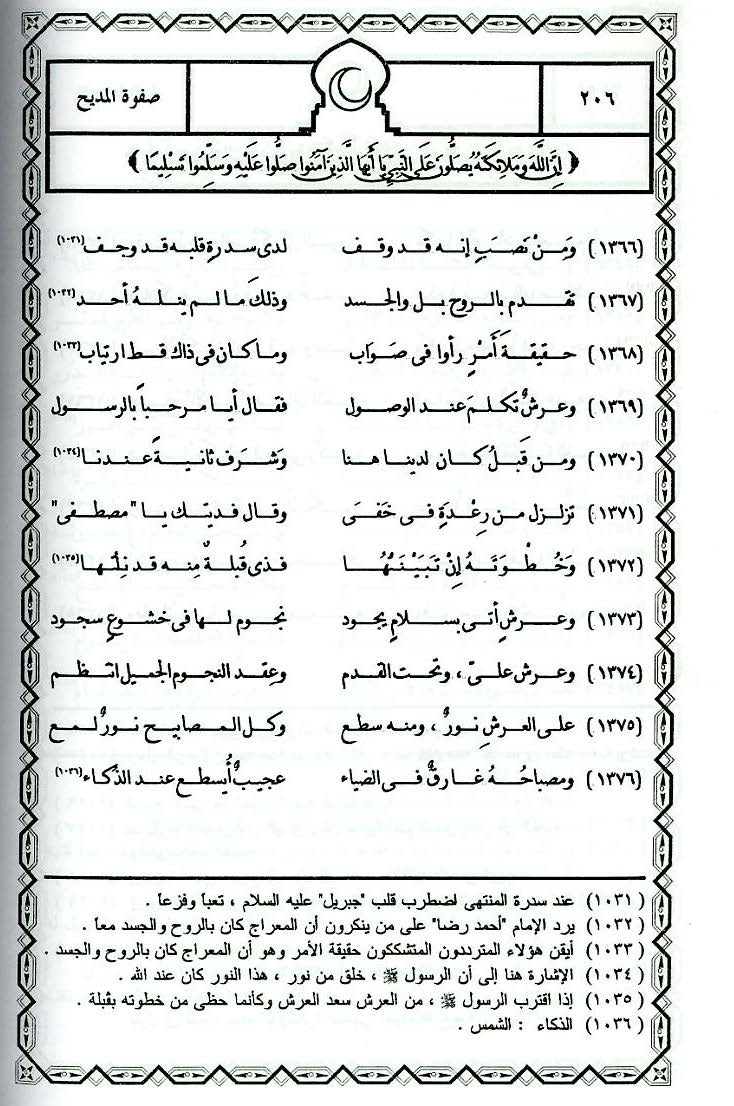 ٢٠٦
صفوة المديح
﴿ إِنَّ اللَّهَ وَمَلَائِكَتَهُ يُصَلُّونَ عَلَى النَّبِيِّ يَا أَيُّهَا الَّذِينَ آمَنُوا صَلُّوا عَلَيْهِ وَسَلِّمُوا تَسْلِيمًا ﴾
(١٣٦٦) وَمِنْ نَصَبٍ إنه قد وقف لدى سدرةٍ قلبه قد وجف (١٠٣١)
(١٣٦٧) تقدم بالروح بل والجسد وذلكَ مَا لم ينلهُ أحد (١٠٣٢)
(١٣٦٨) حقيقةَ أَمْرٍ رأوا فى صَوَاب وما كان فى ذاك قط ارتياب (١٠٣٣)
(١٣٦٩) وعرشٌ تكلمَ عند الوصول فقال أيا مرحباً بالرسول
(١٣٧٠) ومن قَبلُ كان لدينا هنا وَشَرَف ثانيةً عندنا (١٠٣٤)
(١٣٧١) تزلزل من رِعْدَةٍ فى خَفَى وقال فديتك يا "مصطفى"
(١٣٧٢) وَخُطْوَتَهُ إنْ تَبَيَنْتُهَا فذى قُبلةٌ مِنه قد نِلتُها (١٠٣٥)
(١٣٧٣) وعرشٍ أتى بسلامٍ يجود نجوم لها فى خشوعٍ سجود
(١٣٧٤) وعرش علىّ ، وتحت القدم وعِقد النجوم الجميل انتظم
(١٣٧٥) على العرشِ نورٌ ، ومنه سطع وكل المصابيح نورٌ لمع
(١٣٧٦) ومصباحُهُ غارقٌ فى الضياء عجيبٌ أيسطع عند الذكاء (١٠٣٦)
(١٠٣١) عند سدرة المنتهى اضطرب قلب "جبريل" عليه السلام ، تعباً وفزعاً .
(١٠٣٢) يرد الإمام "أحمد رضا" على من ينكرون أن المعراج كان بالروح والجسد معاً .
(١٠٣٣) أيقن هؤلاء المترددون المتشككون حقيقة الأمر وهو أن المعراج كان بالروح والجسد .
(١٠٣٤) الإشارة هنا إلى أن الرسول ﷺ ، خلق من نور ، هذا النور كان عند الله .
(١٠٣٥) إذا اقترب الرسول ﷺ ، من العرش سعد العرش وكأنما حظى من خطوته بقُبلة .
(١٠٣٦) الذكاء : الشمس .